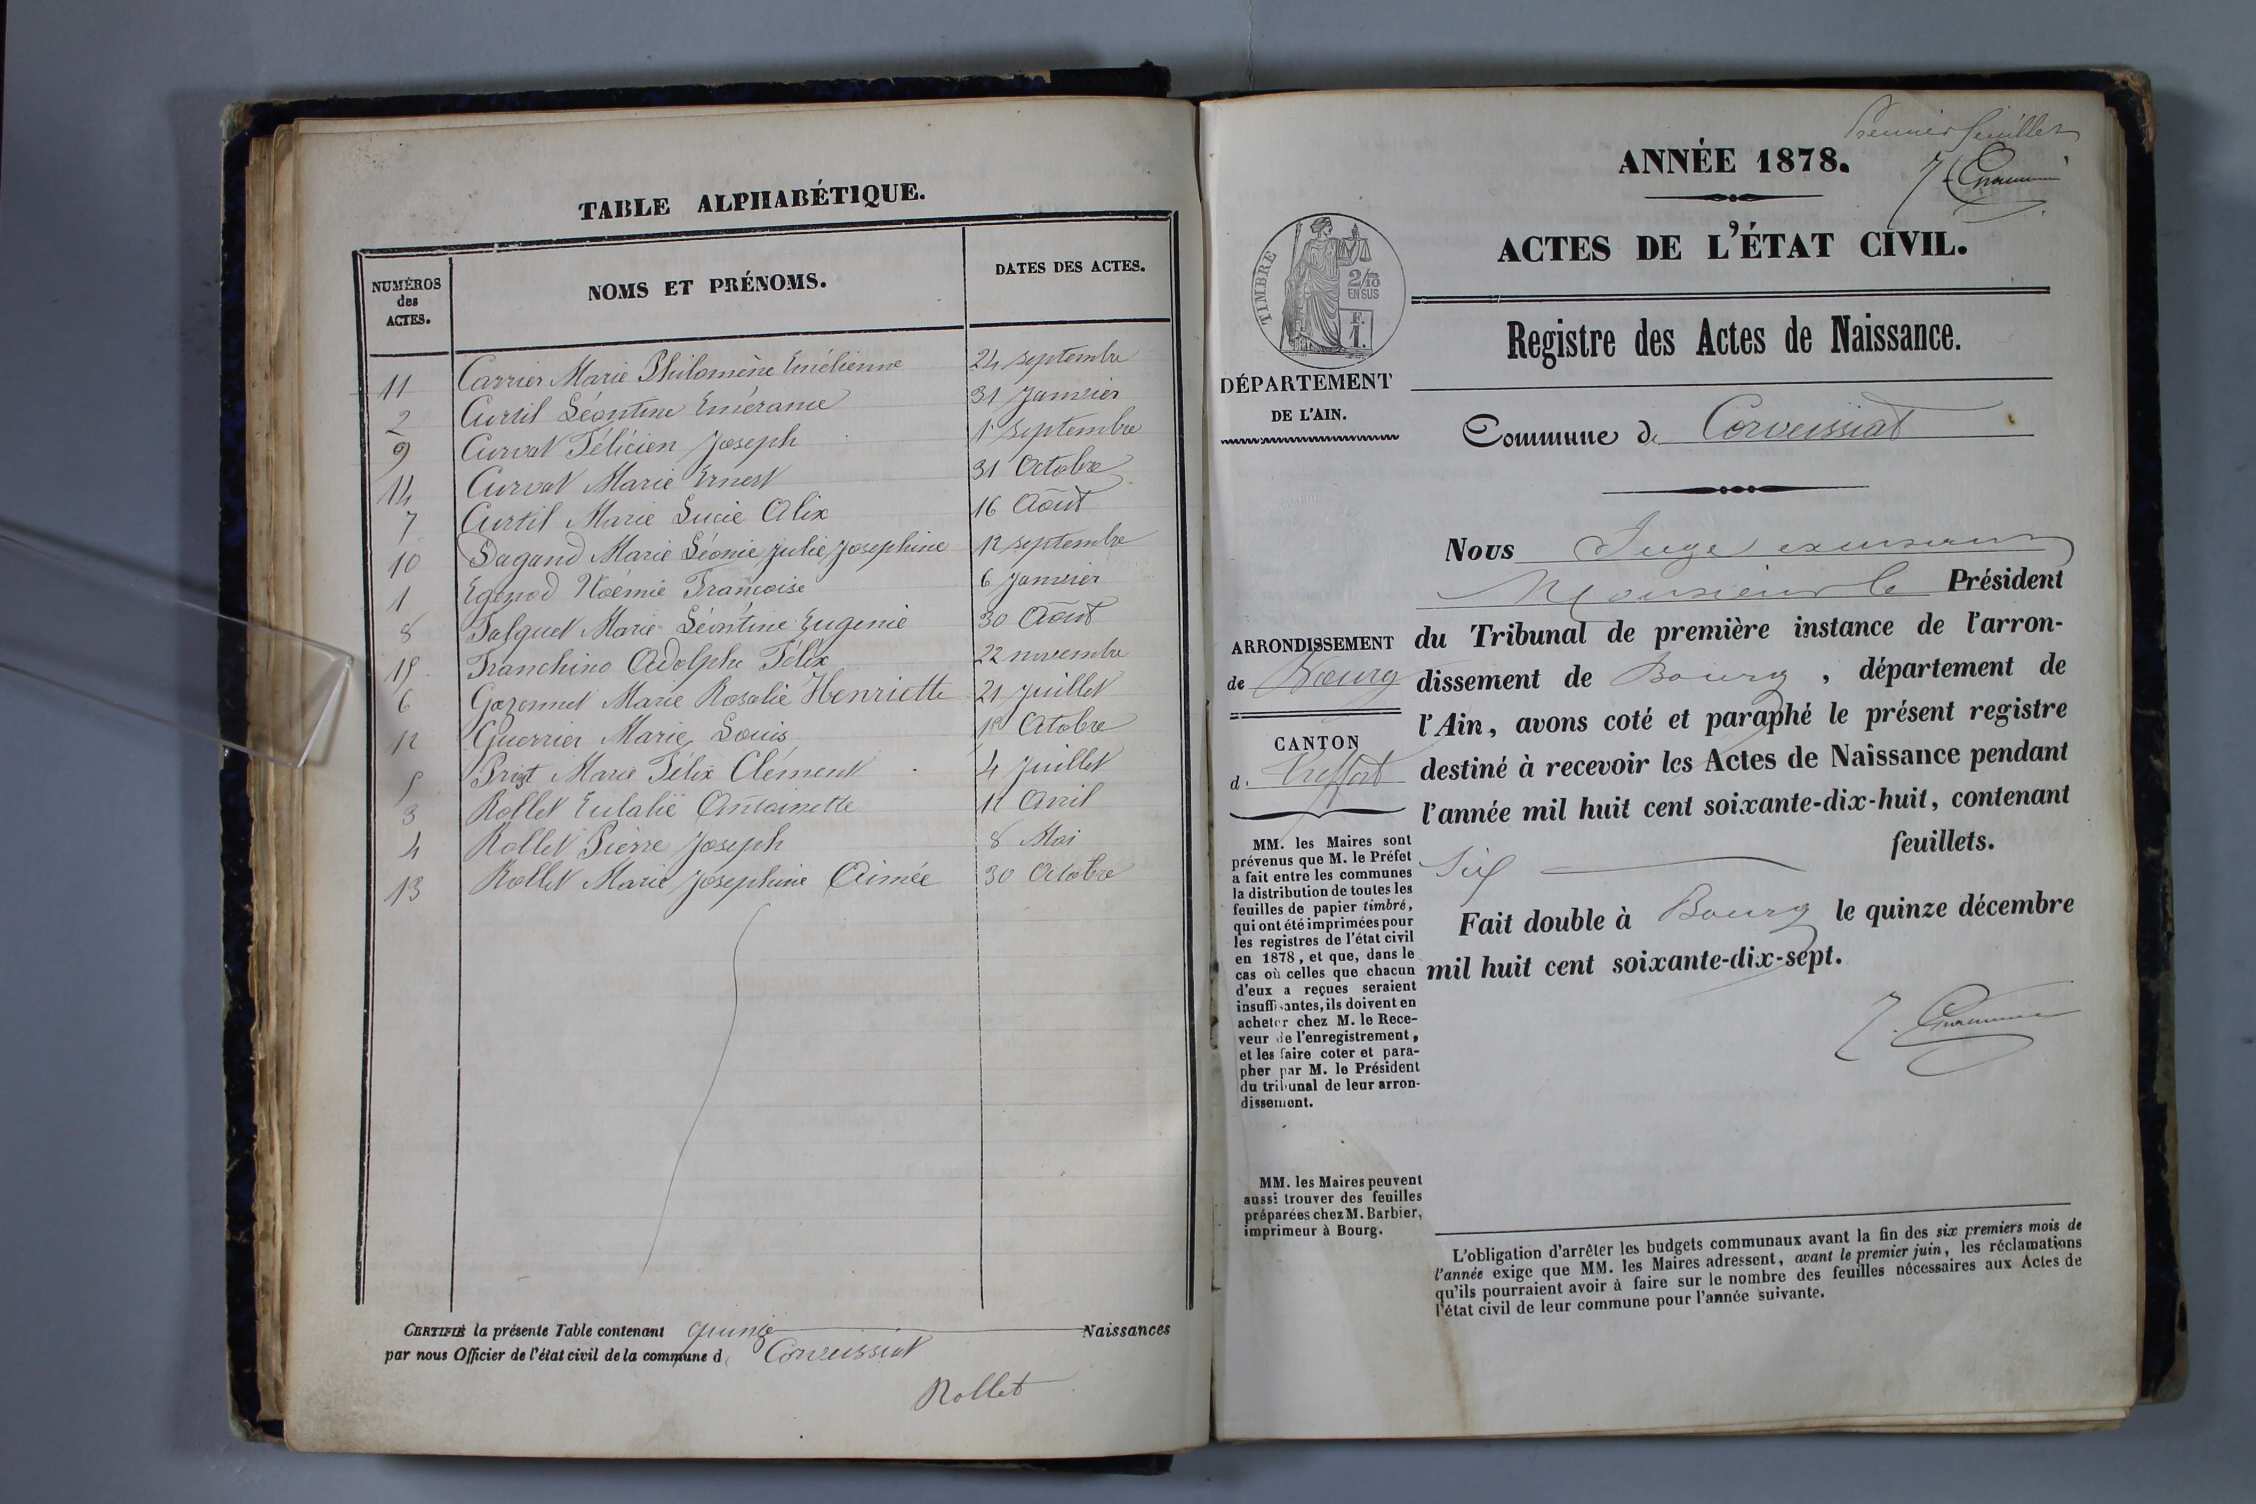 TABLE ALPHABÉTIQUE.
NUMÉROS des ACTES.
NOMS ET PRÉNOMS.
DATES DES ACTES.
11 Carrier Marie Philomène Emélienne 24 septembre
2 Curtil Léontine Emérance 31 Janvier
9 Curvat Félicien Joseph 1r septembre
14 Curvat Marie Ernest 31 Octobre
7 Curtil Marie Lucie Alix 16 Août
10 Dagand Marie Léonie Julie Josephine 12 septembre
1 Egenod Noémie Françoise 6 Janvier
8 Falquet Marie Léontine Eugenie 30 Août
15 Franchino Adolphe Félix 22 novembre
6 Gazonnet Marie Rosalie Henriette 21 Juillet
12 Guerrier Marie Louis Octobre
5 Marie Félix Clément 4 Juillet
3 Rollet Eulalie Antoinette 11 Avril
4 Rollet Pierre Joseph 8 Mai
13 Rollet Marie Josephine Aimée 30 Octobre
CERTIFIÉ la présente Table contenant quinze Naissances
par nous Officier de l'état civil de la commune d Corveissiat
Rollet
Premier feuillet
ANNÉE 1878.
ACTES DE L'ÉTAT CIVIL.
TIMBRE
2/10
EN SUS
F.
1.
Registre des Actes de Naissance.
DÉPARTEMENT
DE L'AIN.
Commune de Corveissiat
Nous Juge exerçant
Monsieur le Président
ARRONDISSEMENT
de Bourg
CANTON
d. Treffort
du Tribunal de première instance de l'arron-
dissement de Bourg, département de
l'Ain, avons coté et paraphé le présent registre
destiné à recevoir les Actes de Naissance pendant
l'année mil huit cent soixante-dix-huit, contenant
Six feuillets.
Fait double à Bourg le quinze décembre
mil huit cent soixante-dix-sept.
MM. les Maires sont
prévenus que M. le Préfet
a fait entre les communes
la distribution de toutes les
feuilles de papier timbré,
qui ont été imprimées pour
les registres de l'état civil
en 1878, et que, dans le
cas où celles que chacun
d'eux a reçues seraient
insuffisantes, ils doivent en
acheter chez M. le Rece-
veur de l'enregistrement,
et les faire coter et para-
pher par M. le Président
du tribunal de leur arron-
dissement.
MM. les Maires peuvent
aussi trouver des feuilles
préparées chez M. Barbier,
imprimeur à Bourg.
L'obligation d'arrêter les budgets communaux avant la fin des six premiers mois de
l'année exige que MM. les Maires adressent, avant le premier juin, les réclamations
qu'ils pourraient avoir à faire sur le nombre des feuilles nécessaires aux Actes de
l'état civil de leur commune pour l'année suivante.